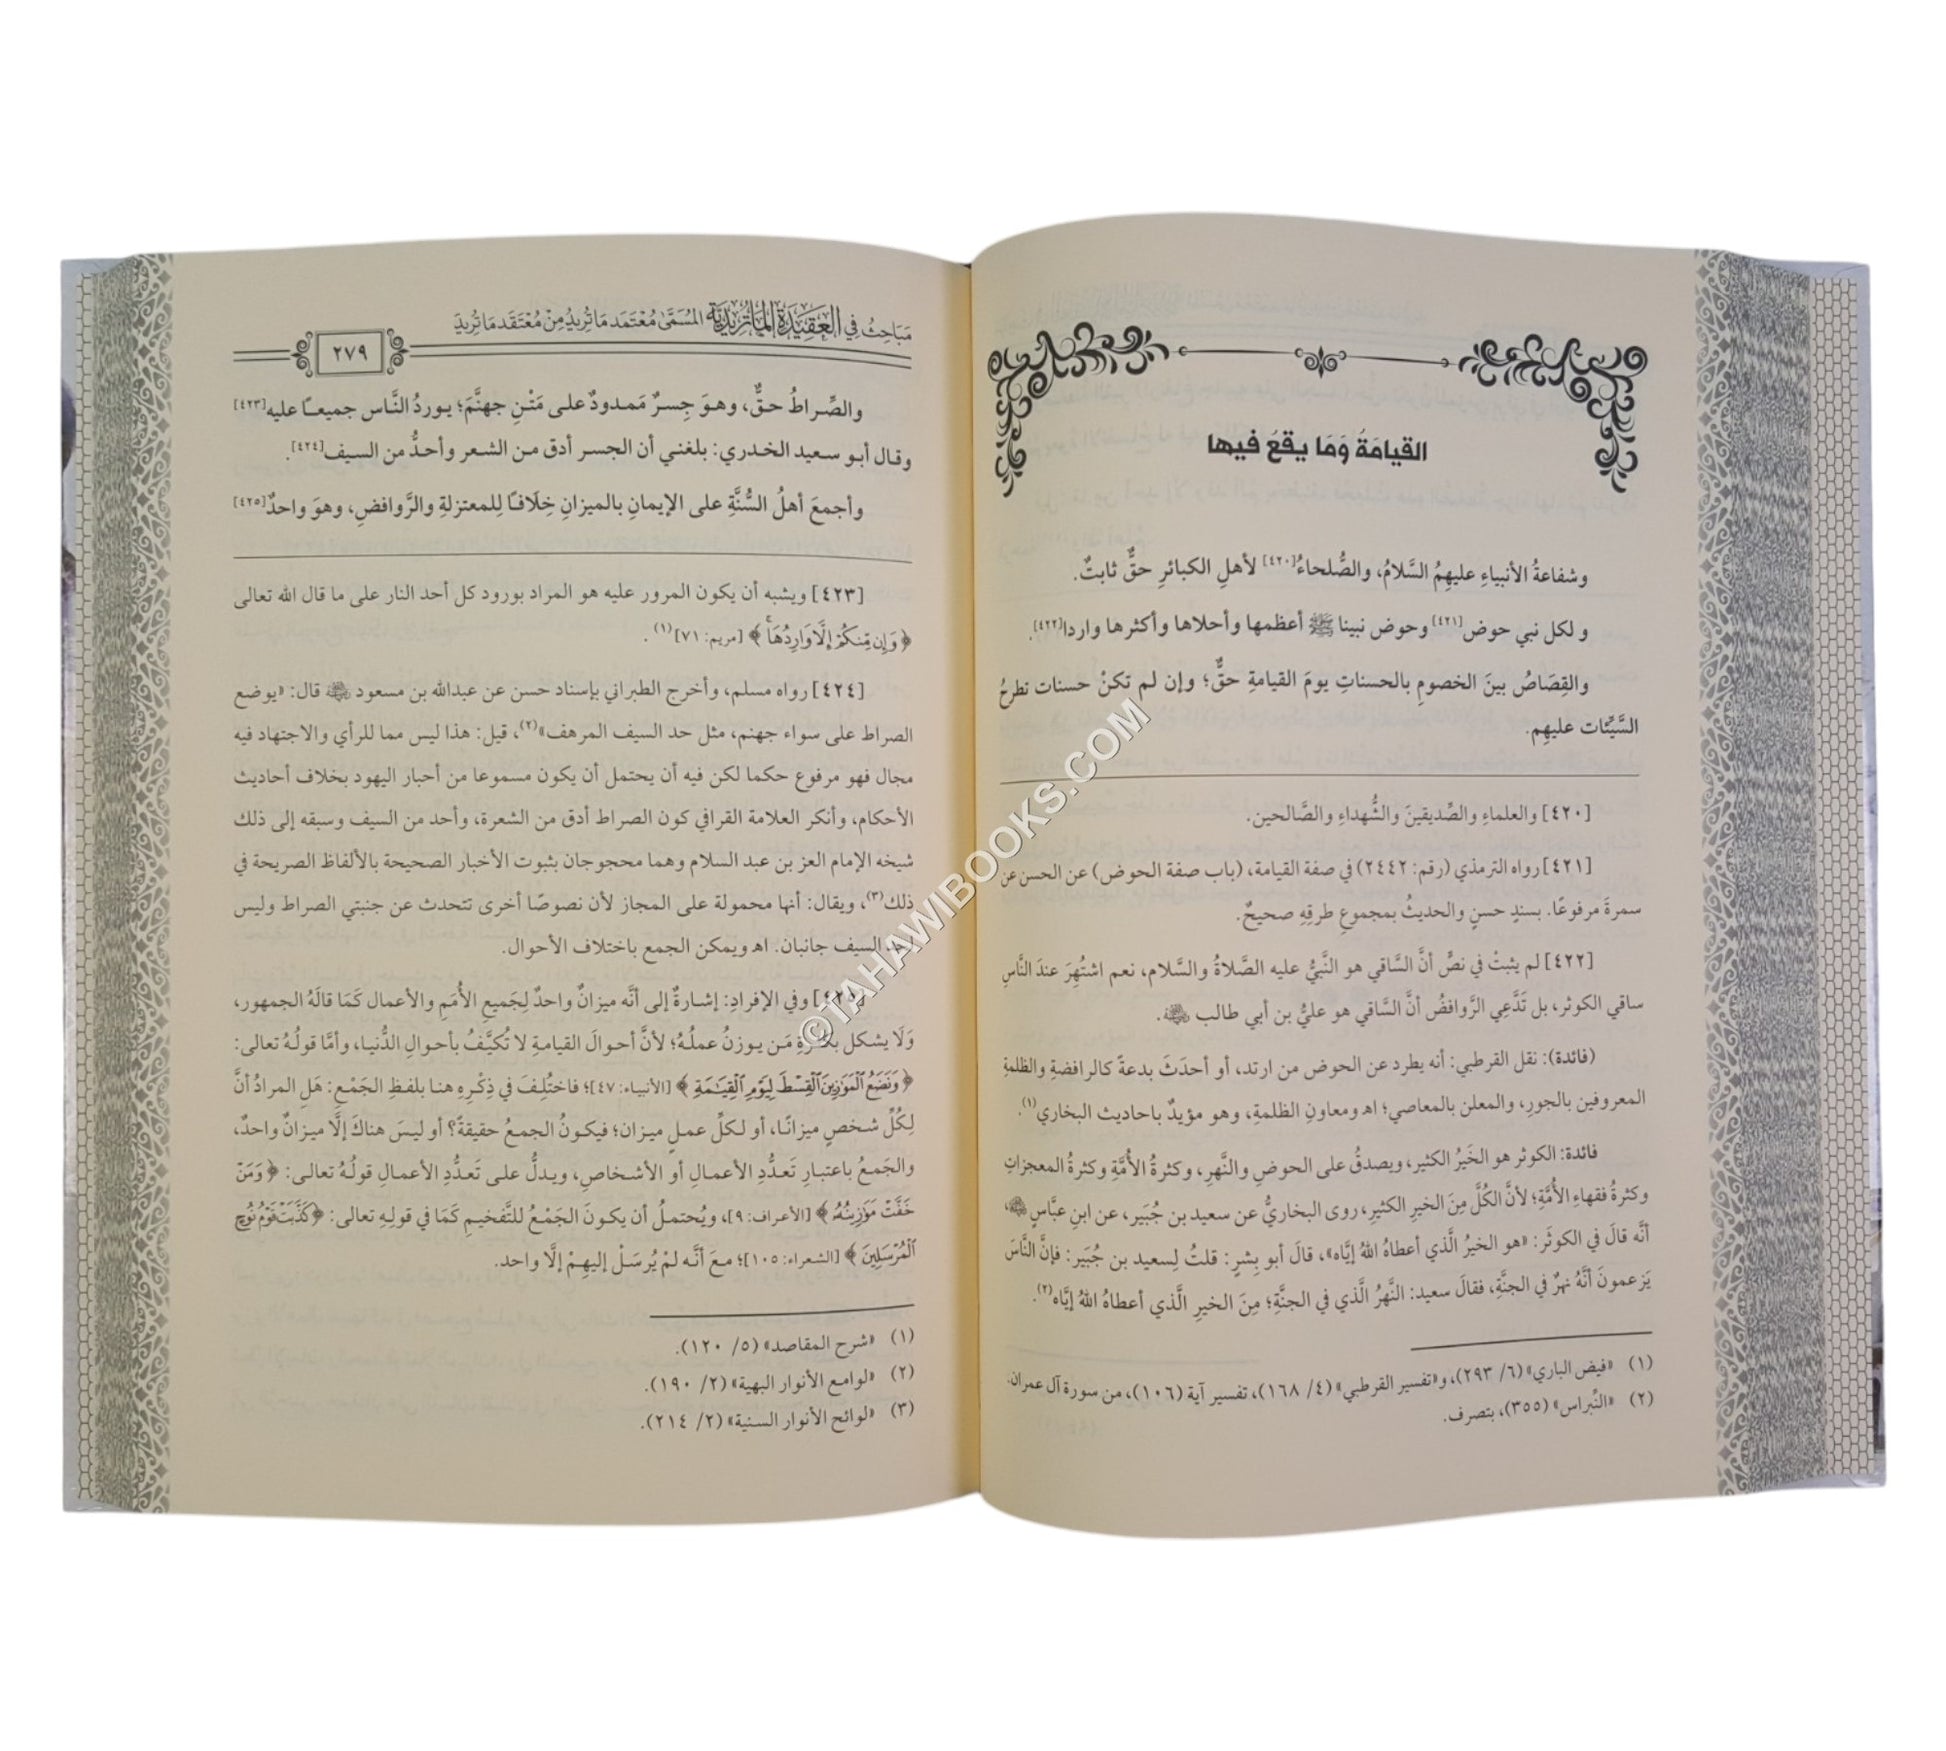 القيامَةُ وَمَا يقعَ فيها
وشفاعةُ الأنبياءِ عليهِمُ السَّلامُ، والصُّلحاءُ[٤٢٠] لأهلِ الكبائرِ حقٌّ ثابتٌ.
و لكل نبي حوض[٤٢١] وحوض نبينا ﷺ أعظمها وأحلاها وأكثرها واردا[٤٢٢].
والقِصَاصُ بينَ الخصومِ بالحسناتِ يومَ القيامةِ حقٌّ؛ وإن لم تكنْ حسنات تطرحُ
السَّيِّئات عليهِم.
[٤٢٠] والعلماءِ والصِّديقينَ والشُّهداءِ والصَّالحين.
[٤٢١] رواه الترمذي (رقم: ٢٤٤٢) في صفة القيامة، (باب صفة الحوض) عن الحسن عن
سمرةَ مرفوعًا. بسندٍ حسنٍ والحديثُ بمجموعِ طرقِهِ صحيحٌ.
[٤٢٢] لم يثبتْ في نصٍّ أنَّ السَّاقي هو النَّبيُّ عليه الصَّلاةُ والسَّلام، نعم اشتُهِرَ عندَ النَّاسِ
ساقي الكوثر، بل تَدَّعِي الرَّوافضُ أنَّ السَّاقي هو عليُّ بن أبي طالب ﵁.
(فائدة): نقل القرطبي: أنه يطرد عن الحوض من ارتد، أو أحدَثَ بدعةً كالرافضةِ والظلمةِ
المعروفين بالجورِ، والمعلن بالمعاصي؛ اه ومعاونِ الظلمةِ، وهو مؤيدٌ باحاديث البخاري(١).
فائدة: الكوثر هو الخَيرُ الكثير، ويصدقُ على الحوضِ والنَّهرِ، وكثرةُ الأُمَّةِ وكثرةُ المعجزاتِ
وكثرةُ فقهاءِ الأُمَّةِ؛ لأنَّ الكُلَّ مِنَ الخيرِ الكثيرِ، روى البخاريُّ عن سعيد بن جُبَير، عن ابنِ عبَّاسٍ ﵄،
أنَّه قالَ في الكوثَر: «هو الخيرُ الَّذي أعطاهُ اللهُ إيَّاه»، قالَ أبو بِشرٍ: قلتُ لِسعيد بن جُبَير: فإنَّ النَّاسَ
يَزعمونَ أنَّهُ نهرٌ في الجنَّةِ، فقالَ سعيد: النَّهرُ الَّذي في الجنَّةِ؛ مِنَ الخيرِ الَّذي أعطاهُ اللهُ إيَّاه(٢).
(١) «فيض الباري» (٦/ ٢٩٣)، و«تفسير القرطبي» (٤/ ١٦٨)، تفسير آية (١٠٦)، من سورة آل عمران.
(٢) «النِّبراس» (٣٥٥)، بتصرف.
مَبَاحِثُ فِي العَقِيدَةِ المَاتُرِيدِيَّة المُسَمَّىٰ مُعْتَمَد مَا تُرِيدُ مِنْ مُعْتَقَد مَاتُرِيدَ
٢٧٩
والصِّراطُ حقٌّ، وهوَ جِسرٌ مَمدودٌ على مَتْنِ جهنَّمَ؛ يوردُ النَّاس جميعًا عليه[٤٢٣]
وقال أبو سعيد الخدري: بلغني أن الجسر أدق من الشعر وأحدُّ من السيف[٤٢٤].
وأجمعَ أهلُ السُّنَّةِ على الإيمانِ بالميزانِ خِلَافًا لِلمعتزلةِ والرَّوافضِ، وهوَ واحدٌ[٤٢٥]
[٤٢٣] ويشبه أن يكون المرور عليه هو المراد بورود كل أحد النار على ما قال الله تعالى
﴿وَإِن مِّنكُمْ إِلَّا وَارِدُهَا﴾ [مريم: ٧١](١).
[٤٢٤] رواه مسلم، وأخرج الطبراني بإسناد حسن عن عبدالله بن مسعود ﵁ قال: «يوضع
الصراط على سواء جهنم، مثل حد السيف المرهف»(٢)، قيل: هذا ليس مما للرأي والاجتهاد فيه
مجال فهو مرفوع حكما لكن فيه أن يحتمل أن يكون مسموعا من أحبار اليهود بخلاف أحاديث
الأحكام، وأنكر العلامة القرافي كون الصراط أدق من الشعرة، وأحد من السيف وسبقه إلى ذلك
شيخه الإمام العز بن عبد السلام وهما محجوجان بثبوت الأخبار الصحيحة بالألفاظ الصريحة في
ذلك(٣)، ويقال: أنها محمولة على المجاز لأن نصوصًا أخرى تتحدث عن جنبتي الصراط وليس
لحد السيف جانبان. اه ويمكن الجمع باختلاف الأحوال.
[٤٢٥] وفي الإفرادِ: إشارةٌ إلى أنَّه ميزانٌ واحدٌ لِجَميعِ الأُمَمِ والأعمال كَمَا قالَهُ الجمهور،
وَلَا يشكل بكثرةِ مَن يوزنُ عملُهُ؛ لأنَّ أحوالَ القيامةِ لا تُكيَّفُ بأحوالِ الدُّنيا، وأمَّا قولُهُ تعالى:
﴿وَنَضَعُ الْمَوَازِينَ الْقِسْطَ لِيَوْمِ الْقِيَامَةِ﴾ [الأنبياء: ٤٧]؛ فاختُلِفَ في ذِكْرِهِ هنا بلفظِ الجَمْعِ: هَلِ المرادُ أنَّ
لِكُلِّ شخصٍ ميزانًا، أو لكلِّ عملٍ ميزان؛ فيكونُ الجمعُ حقيقةً؟ أو ليسَ هناكَ إلَّا ميزانٌ واحدٌ،
والجَمعُ باعتبارِ تَعدُّدِ الأعمالِ أو الأشخاصِ، ويدلُّ على تَعدُّدِ الأعمالِ قولُهُ تعالى: ﴿وَمَنْ
خَفَّتْ مَوَازِينُهُ﴾ [الأعراف: ٩]، ويُحتملُ أن يكونَ الجَمْعُ للتَّفخيمِ كَمَا في قولِهِ تعالى: ﴿كَذَّبَتْ قَوْمُ نُوحٍ
الْمُرْسَلِينَ﴾ [الشعراء: ١٠٥]؛ معَ أنَّه لمْ يُرسَلْ إليهِمْ إلَّا واحد.
(١) «شرح المقاصد» (٥/ ١٢٠).
(٢) «لوامع الأنوار البهية» (٢/ ١٩٠).
(٣) «لوائح الأنوار السنية» (٢/ ٢١٤).
©TAHAWIBOOKS.COM